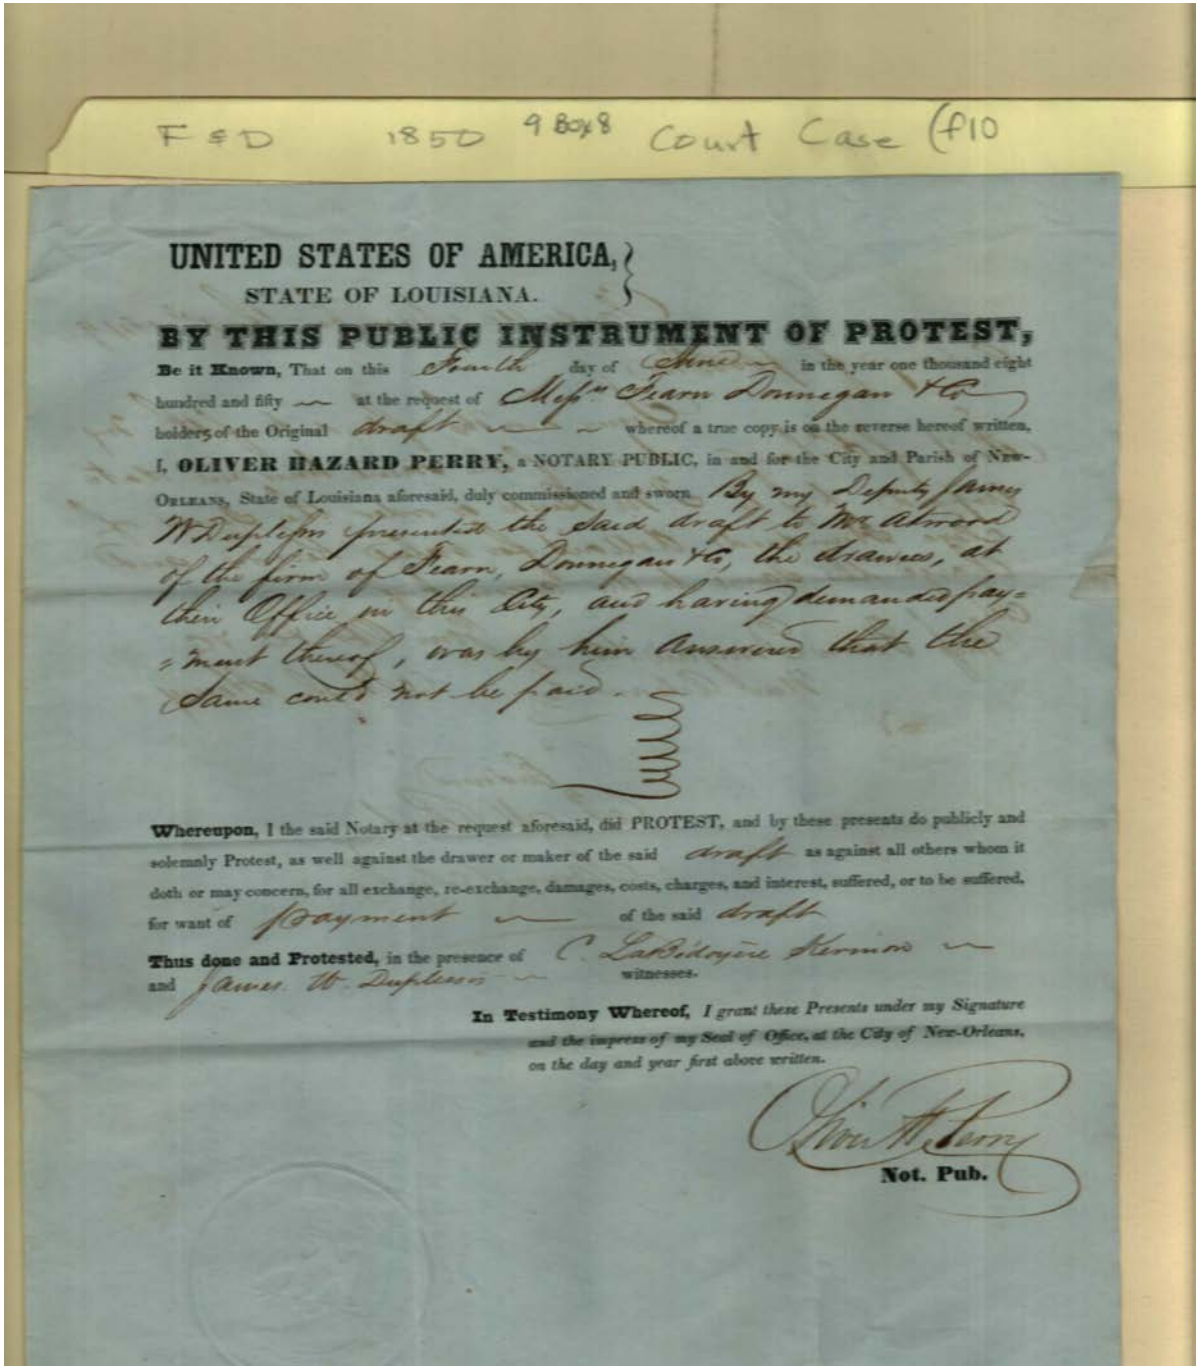 F & D 1850 9 Box 8 Court Case (f10
UNITED STATES OF AMERICA,
STATE OF LOUISIANA.
BY THIS PUBLIC INSTRUMENT OF PROTEST,
Be it Known, That on this Fourth day of June in the year one thousand eight
hundred and fifty at the request of Messrs Fearn Donnegan & Co
holders of the Original draft whereof a true copy is on the reverse hereof written,
I, OLIVER HAZARD PERRY, a NOTARY PUBLIC, in and for the City and Parish of New-
ORLEANS, State of Louisiana aforesaid, duly commissioned and sworn By my Deputy James
W Duplessis presented the said draft to Mr Atwood
of the firm of Fearn, Donnegan & Co, the drawees, at
their Office in this City, and having demanded pay=
=ment thereof, was by him answered that the
Same could not be paid.
Whereupon, I the said Notary at the request aforesaid, did PROTEST, and by these presents do publicly and
solemnly Protest, as well against the drawer or maker of the said draft as against all others whom it
doth or may concern, for all exchange, re-exchange, damages, costs, charges, and interest, suffered, or to be suffered,
for want of payment of the said draft
Thus done and Protested, in the presence of C. LaBédoyère Kernion
and James W. Duplessis witnesses.
In Testimony Whereof, I grant these Presents under my Signature
and the impress of my Seal of Office, at the City of New-Orleans,
on the day and year first above written.
Oliver H. Perry
Not. Pub.